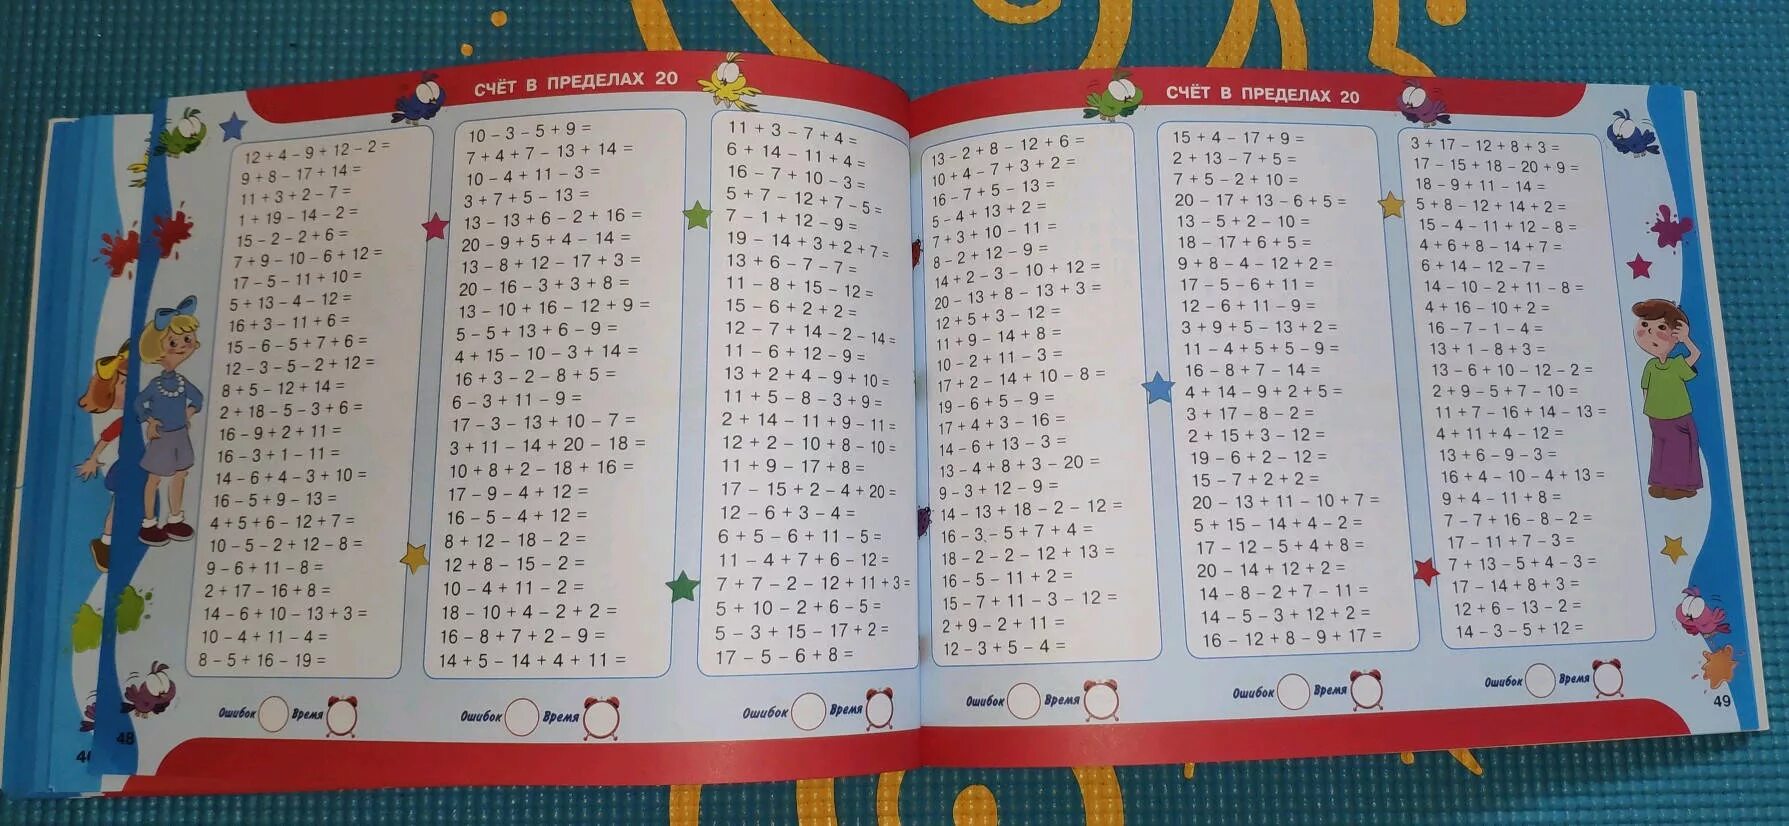 СЧЁТ В ПРЕДЕЛАХ 20
12 + 4 – 9 + 12 – 2 =
9 + 8 – 17 + 14 =
11 + 3 + 2 – 7 =
1 + 19 – 14 – 2 =
15 – 2 – 2 + 6 =
7 + 9 – 10 – 6 + 12 =
17 – 5 – 11 + 10 =
5 + 13 – 4 – 12 =
16 + 3 – 11 + 6 =
15 – 6 – 5 + 7 + 6 =
12 – 3 – 5 – 2 + 12 =
8 + 5 – 12 + 14 =
2 + 18 – 5 – 3 + 6 =
16 – 9 + 2 + 11 =
16 – 3 + 1 – 11 =
14 – 6 + 4 – 3 + 10 =
16 – 5 + 9 – 13 =
4 + 5 + 6 – 12 + 7 =
10 – 5 – 2 + 12 – 8 =
9 – 6 + 11 – 8 =
2 + 17 – 16 + 8 =
14 – 6 + 10 – 13 + 3 =
10 – 4 + 11 – 4 =
8 – 5 + 16 – 19 =
Ошибок Время
10 – 3 – 5 + 9 =
7 + 4 + 7 – 13 + 14 =
10 – 4 + 11 – 3 =
3 + 7 + 5 – 13 =
13 – 13 + 6 – 2 + 16 =
20 – 9 + 5 + 4 – 14 =
13 – 8 + 12 – 17 + 3 =
20 – 16 – 3 + 3 + 8 =
13 – 10 + 16 – 12 + 9 =
5 – 5 + 13 + 6 – 9 =
4 + 15 – 10 – 3 + 14 =
16 + 3 – 2 – 8 + 5 =
6 – 3 + 11 – 9 =
17 – 3 – 13 + 10 – 7 =
3 + 11 – 14 + 20 – 18 =
10 + 8 + 2 – 18 + 16 =
17 – 9 – 4 + 12 =
16 – 5 – 4 + 12 =
8 + 12 – 18 – 2 =
12 + 8 – 15 – 2 =
10 – 4 + 11 – 2 =
18 – 10 + 4 – 2 + 2 =
16 – 8 + 7 + 2 – 9 =
14 + 5 – 14 + 4 + 11 =
Ошибок Время
11 + 3 – 7 + 4 =
6 + 14 – 11 + 4 =
16 – 7 + 10 – 3 =
5 + 7 – 12 + 7 – 5 =
7 – 1 + 12 – 9 =
19 – 14 + 3 + 2 + 7 =
13 + 6 – 7 – 7 =
11 – 8 + 15 – 12 =
15 – 6 + 2 + 2 =
12 – 7 + 14 – 2 – 14 =
11 – 6 + 12 – 9 =
13 + 2 + 4 – 9 + 10 =
11 + 5 – 8 – 3 + 9 =
2 + 14 – 11 + 9 – 11 =
12 + 2 – 10 + 8 – 10 =
11 + 9 – 17 + 8 =
17 – 15 + 2 – 4 + 20 =
12 – 6 + 3 – 4 =
6 + 5 – 6 + 11 – 5 =
11 – 4 + 7 + 6 – 12 =
7 + 7 – 2 – 12 + 11 + 3 =
5 + 10 – 2 + 6 – 5 =
5 – 3 + 15 – 17 + 2 =
17 – 5 – 6 + 8 =
Ошибок Время
48
СЧЁТ В ПРЕДЕЛАХ 20
13 – 2 + 8 – 12 + 6 =
10 + 4 – 7 + 3 + 2 =
16 – 7 + 5 – 13 =
5 – 4 + 13 + 2 =
7 + 3 + 10 – 11 =
8 – 2 + 12 – 9 =
14 + 2 – 3 – 10 + 12 =
20 – 13 + 8 – 13 + 3 =
12 + 5 + 3 – 12 =
11 + 9 – 14 + 8 =
10 – 2 + 11 – 3 =
17 + 2 – 14 + 10 – 8 =
19 – 6 + 5 – 9 =
17 + 4 + 3 – 16 =
14 – 6 + 13 – 3 =
13 – 4 + 8 + 3 – 20 =
9 – 3 + 12 – 9 =
14 – 13 + 18 – 2 – 12 =
16 – 3 – 5 + 7 + 4 =
18 – 2 – 2 – 12 + 13 =
16 – 5 – 11 + 2 =
15 – 7 + 11 – 3 – 12 =
2 + 9 – 2 + 11 =
12 – 3 + 5 – 4 =
Ошибок Время
15 + 4 – 17 + 9 =
2 + 13 – 7 + 5 =
7 + 5 – 2 + 10 =
20 – 17 + 13 – 6 + 5 =
13 – 5 + 2 – 10 =
18 – 17 + 6 + 5 =
9 + 8 – 4 – 12 + 2 =
17 – 5 – 6 + 11 =
12 – 6 + 11 – 9 =
3 + 9 + 5 – 13 + 2 =
11 – 4 + 5 + 5 – 9 =
16 – 8 + 7 – 14 =
4 + 14 – 9 + 2 + 5 =
3 + 17 – 8 – 2 =
2 + 15 + 3 – 12 =
19 – 6 + 2 – 12 =
15 – 7 + 2 + 2 =
20 – 13 + 11 – 10 + 7 =
5 + 15 – 14 + 4 – 2 =
17 – 12 – 5 + 4 + 8 =
20 – 14 + 12 + 2 =
14 – 8 – 2 + 7 – 11 =
14 – 5 – 3 + 12 + 2 =
16 – 12 + 8 – 9 + 17 =
Ошибок Время
3 + 17 – 12 + 8 + 3 =
17 – 15 + 18 – 20 + 9 =
18 – 9 + 11 – 14 =
5 + 8 – 12 + 14 + 2 =
15 – 4 – 11 + 12 – 8 =
4 + 6 + 8 – 14 + 7 =
6 + 14 – 12 – 7 =
14 – 10 – 2 + 11 – 8 =
4 + 16 – 10 + 2 =
16 – 7 – 1 – 4 =
13 + 1 – 8 + 3 =
13 – 6 + 10 – 12 – 2 =
2 + 9 – 5 + 7 – 10 =
11 + 7 – 16 + 14 – 13 =
4 + 11 + 4 – 12 =
13 + 6 – 9 – 3 =
16 + 4 – 10 – 4 + 13 =
9 + 4 – 11 + 8 =
7 – 7 + 16 – 8 – 2 =
17 – 11 + 7 – 3 =
7 + 13 – 5 + 4 – 3 =
17 – 14 + 8 + 3 =
12 + 6 – 13 – 2 =
14 – 3 – 5 + 12 =
Ошибок Время
49